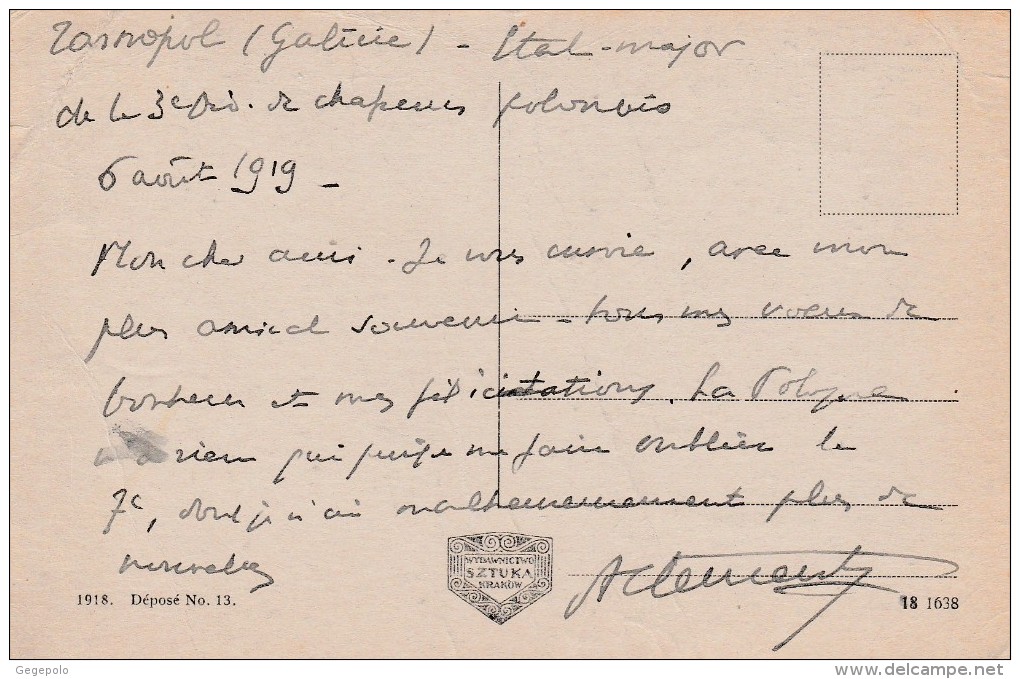 Tarnopol (Galicie) - Etat-major
de la 3e Div. de chasseurs polonais
6 août 1919 -
Mon cher ami - Je vous envoie, avec mon
plus amical souvenir - tous mes voeux de
bonheur et mes félicitations. La Pologne
n'a rien qui puisse me faire oublier le
7e, dont je n'ai malheureusement plus de
nouvelles
AClement
WYDAWNICTWO
SZTUKA
KRAKÓW
1918. Déposé No. 13.
18 1638
Gegepolo
www.delcampe.net